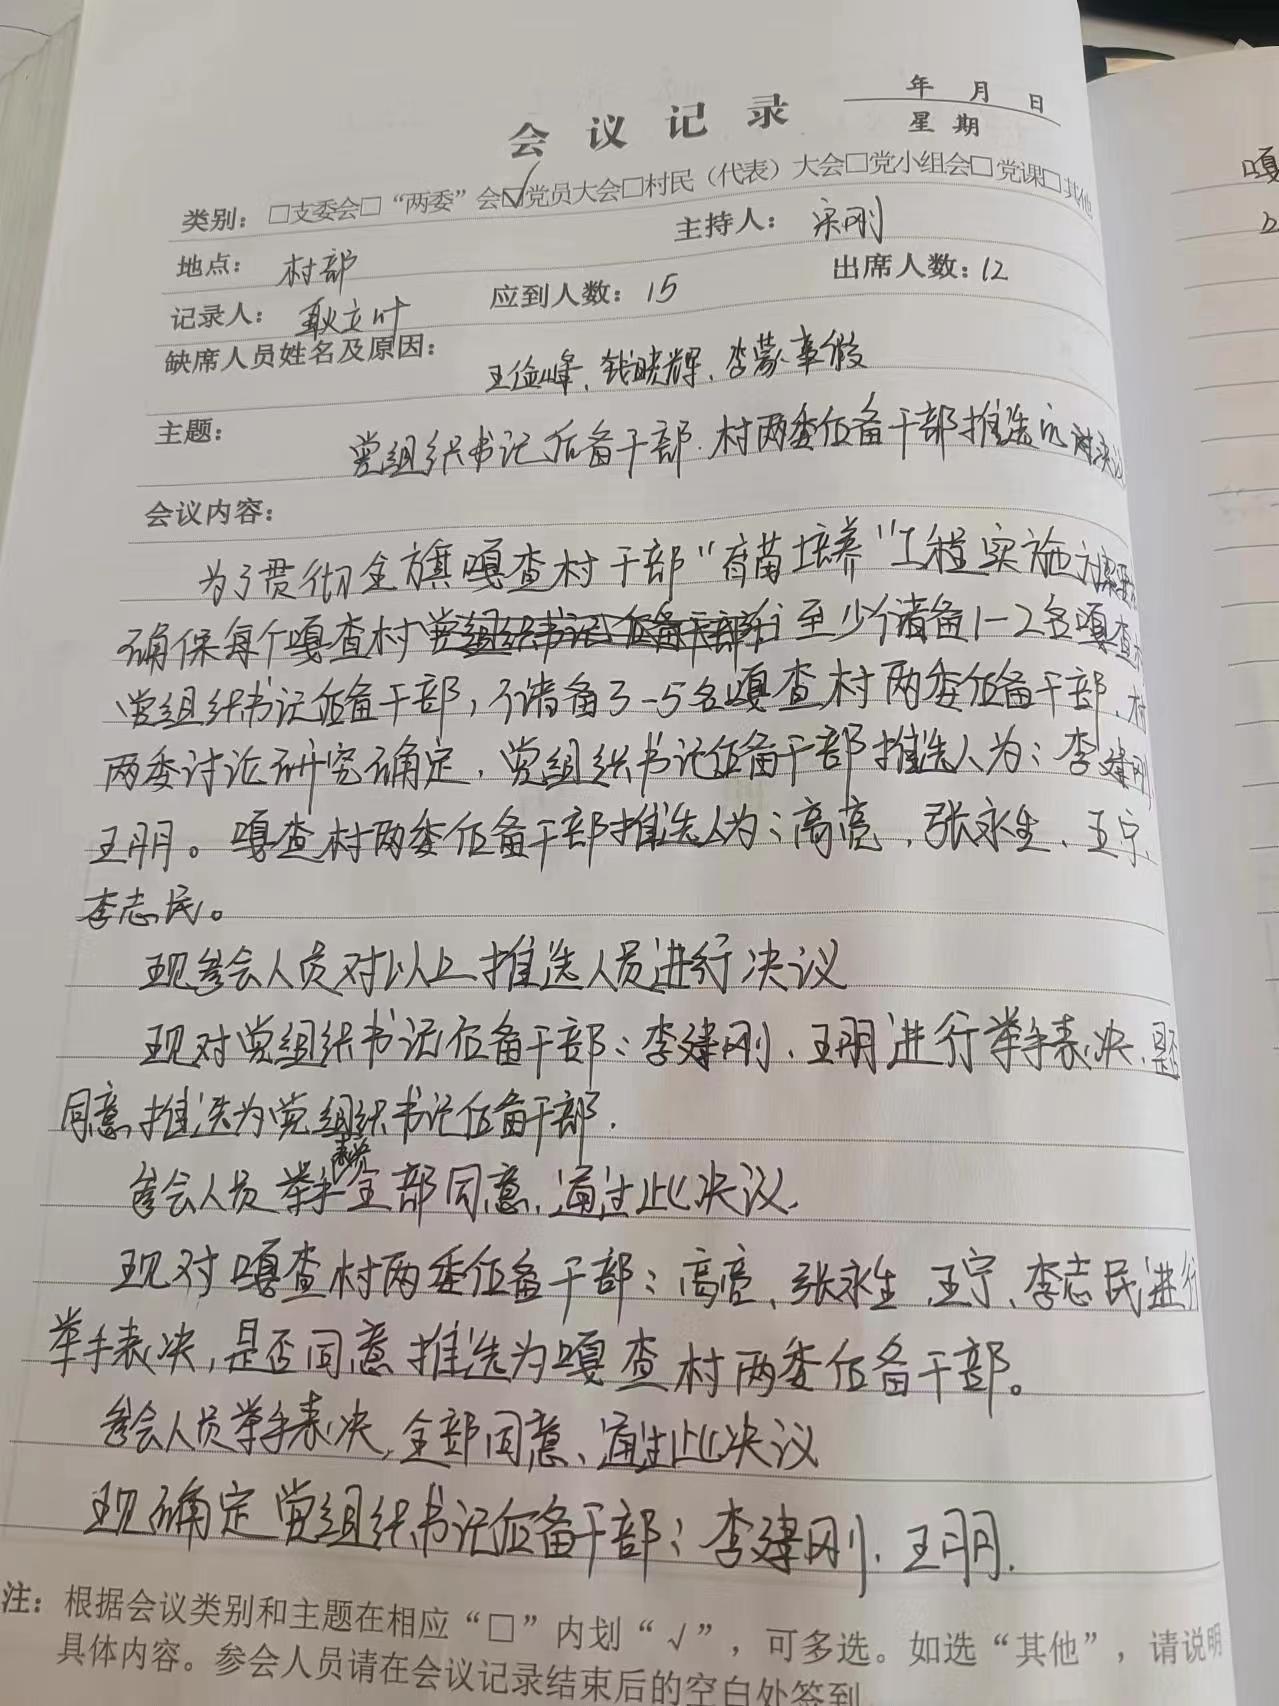 年 月 日
会议记录
星期
类别：□支委会□“两委”会☑党员大会□村民（代表）大会□党小组会□党课□其他
地点：村部 主持人：宋刚
记录人：耿立叶 应到人数：15 出席人数：12
缺席人员姓名及原因：王俭峰、钱晓辉、李蒙事假
主题：党组织书记后备干部、村两委后备干部推选
会议内容：
为了贯彻全旗嘎查村干部“育苗培养”工程实施方案
确保每个嘎查村至少储备1-2名嘎查村
党组织书记后备干部，储备3-5名嘎查村两委后备干部，村
两委讨论研究确定，党组织书记后备干部推选人为：李建刚
王册。嘎查村两委后备干部推选人为：高亮、张永生、王宁、
李志民。
现参会人员对以上推选人员进行决议
现对党组织书记后备干部：李建刚、王册进行举手表决，是否
同意推选为党组织书记后备干部．
参会人员举手表决全部同意，通过此决议．
现对嘎查村两委后备干部：高亮、张永生、王宁、李志民进行
举手表决，是否同意推选为嘎查村两委后备干部。
参会人员举手表决，全部同意、通过此决议
现确定党组织书记后备干部：李建刚、王册．
注：根据会议类别和主题在相应“□”内划“√”，可多选。如选“其他”，请说明
具体内容。参会人员请在会议记录结束后的空白处签到
嘎